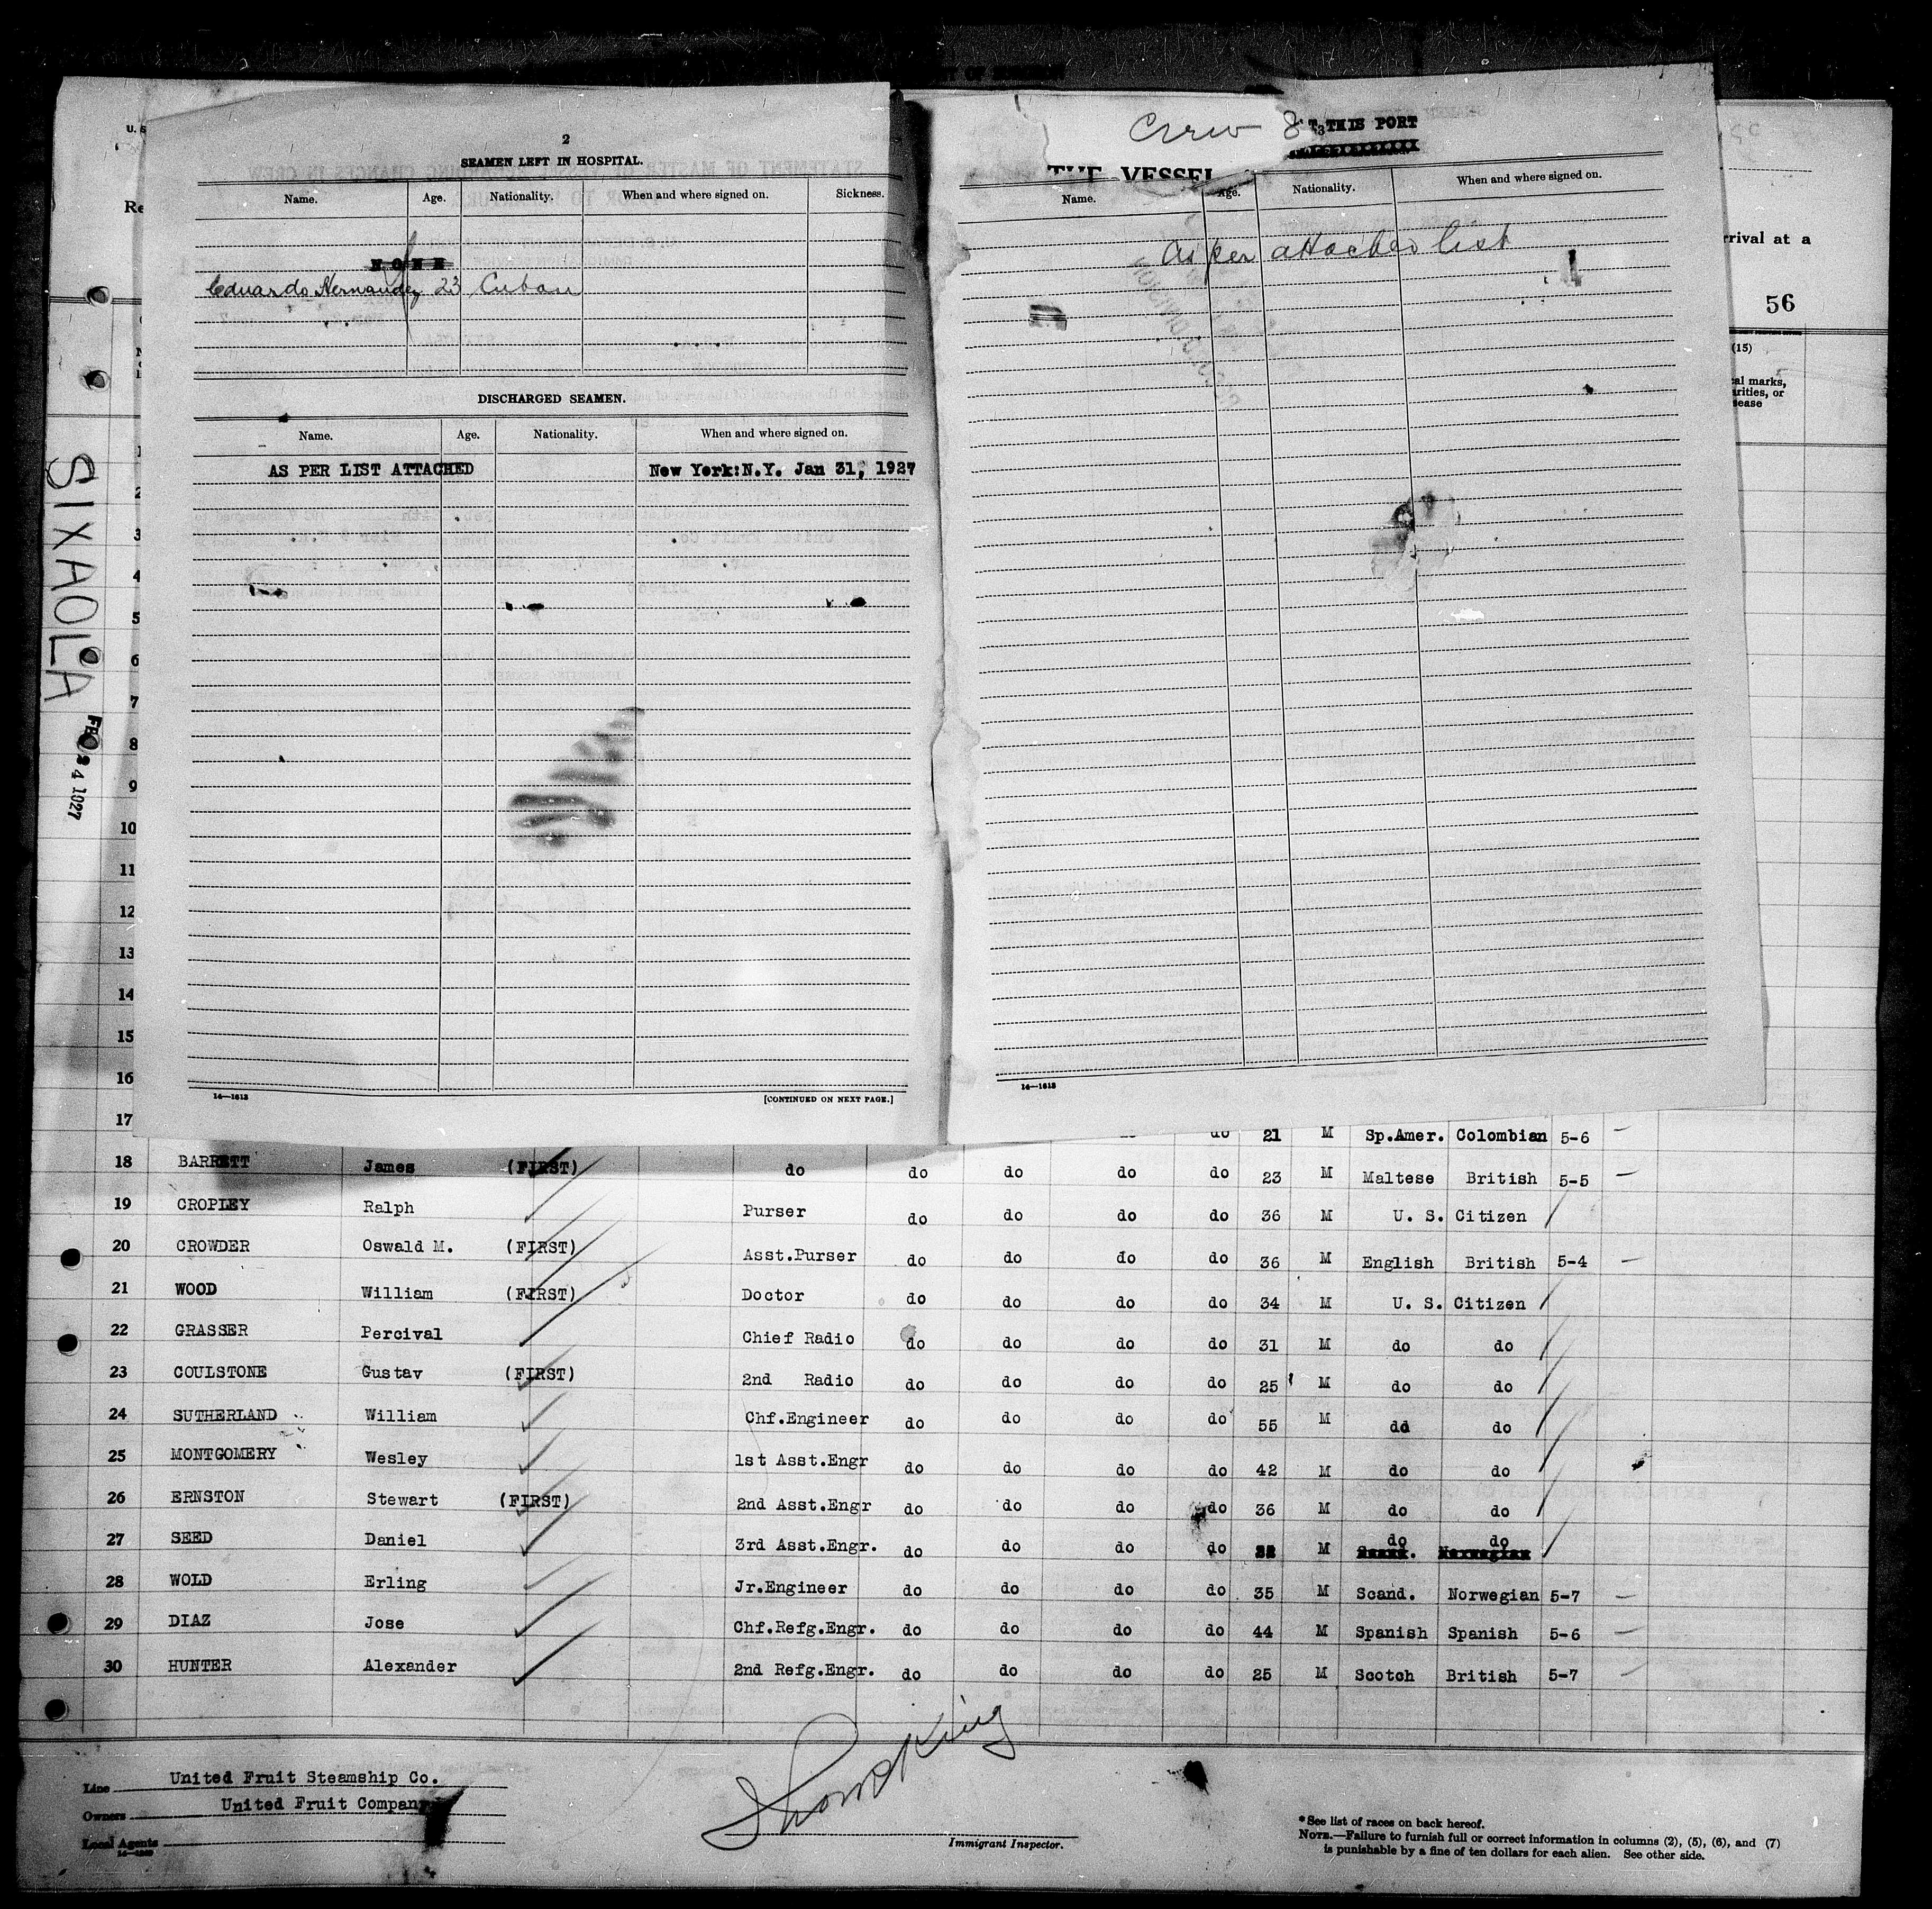 U. S
Re
SIXAOLA
FEB 24 1927
2
SEAMEN LEFT IN HOSPITAL.
Name. Age. Nationality. When and where signed on. Sickness.
NONE
Eduardo Hernandez 23 Cuban
DISCHARGED SEAMEN.
Name. Age. Nationality. When and where signed on.
AS PER LIST ATTACHED New York:N.Y. Jan 31, 1927
14—1613 [CONTINUED ON NEXT PAGE.]
Crew 8
3
T THIS PORT
THE VESSEL
Name. Age. Nationality. When and where signed on.
as per attached list
14—1613
rrival at a
56
(15)
al marks,
arities, or
ease
1
2
3
4
5
6
7
8
9
10
11
12
13
14
15
16
17 do do 21 M Sp.Amer. Colombian 5-6 —
18 BARRETT James (FIRST) do do do do do 23 M Maltese British 5-5 —
19 CROPLEY Ralph Purser do do do do 36 M U. S. Citizen /
20 CROWDER Oswald M. (FIRST) Asst.Purser do do do do 36 M English British 5-4 —
21 WOOD William (FIRST) Doctor do do do do 34 M U. S. Citizen /
22 GRASSER Percival Chief Radio do do do do 31 M do do /
23 COULSTONE Gustav (FIRST) 2nd Radio do do do do 25 M do do /
24 SUTHERLAND William Chf.Engineer do do do do 55 M dd do /
25 MONTGOMERY Wesley 1st Asst.Engr do do do do 42 M do do /
26 ERNSTON Stewart (FIRST) 2nd Asst.Engr do do do do 36 M do do /
27 SEED Daniel 3rd Asst.Engr. do do do do M do do /
Scand. Norwegian
28 WOLD Erling Jr.Engineer do do do do 35 M Scand. Norwegian 5-7 —
29 DIAZ Jose Chf.Refg.Engr. do do do do 44 M Spanish Spanish 5-6 —
30 HUNTER Alexander 2nd Refg.Engr. do do do do 25 M Scotch British 5-7 —
Line United Fruit Steamship Co.
Owners United Fruit Company
Local Agents
14—1240
Immigrant Inspector.
*See list of races on back hereof.
NOTE.—Failure to furnish full or correct information in columns (2), (5), (6), and (7)
is punishable by a fine of ten dollars for each alien. See other side.